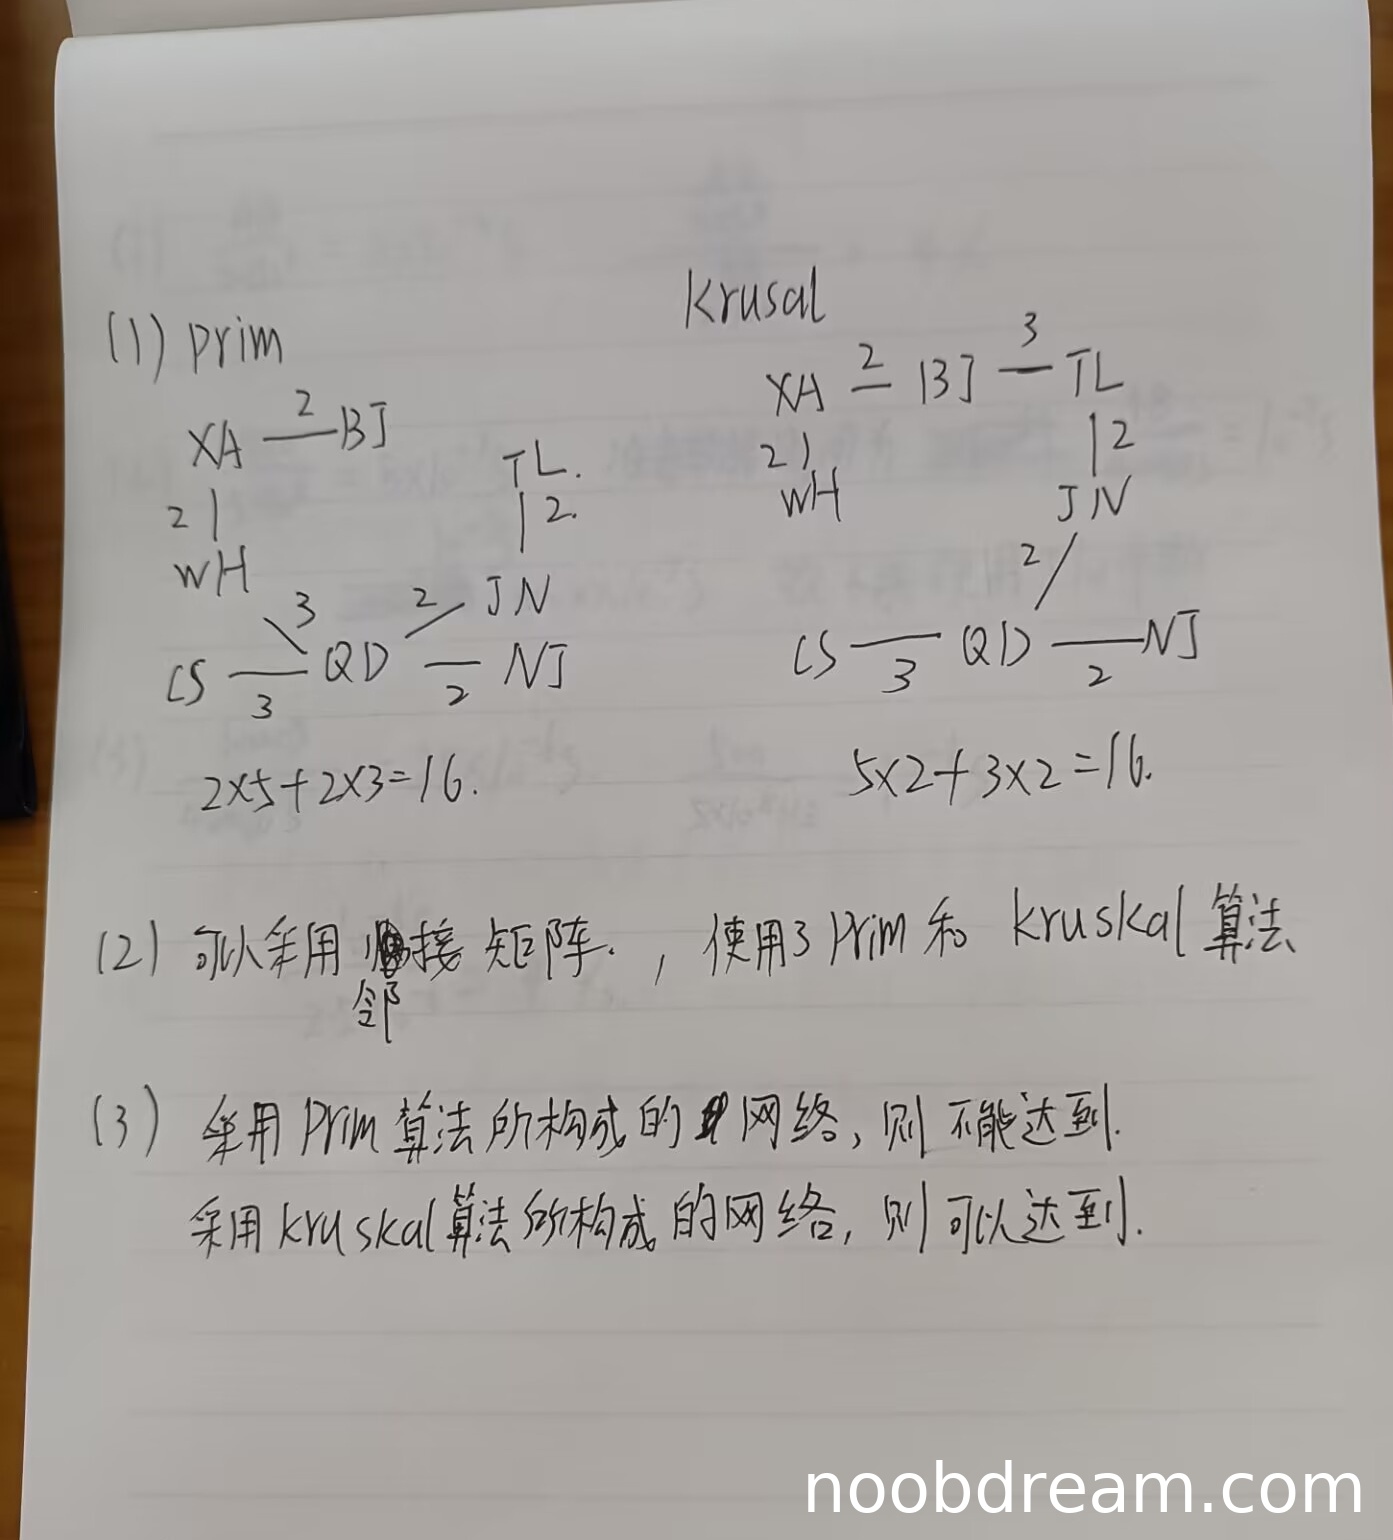 (1) prim
XA 2 BJ
TL.
2 2.
WH
3 2 JN
CS QD NJ
3 2
2×5+2×3=16.
krusal
XA 2 BJ 3 TL
2 2
WH JN
2
CS QD NJ
3 2
5×2+3×2=16.
(2) 可以采用邻接矩阵., 使用3 Prim 和 kruskal 算法
(3) 采用 Prim 算法所构成的网络, 则不能达到.
采用 kruskal 算法所构成的网络, 则可以达到.
noobdream.com